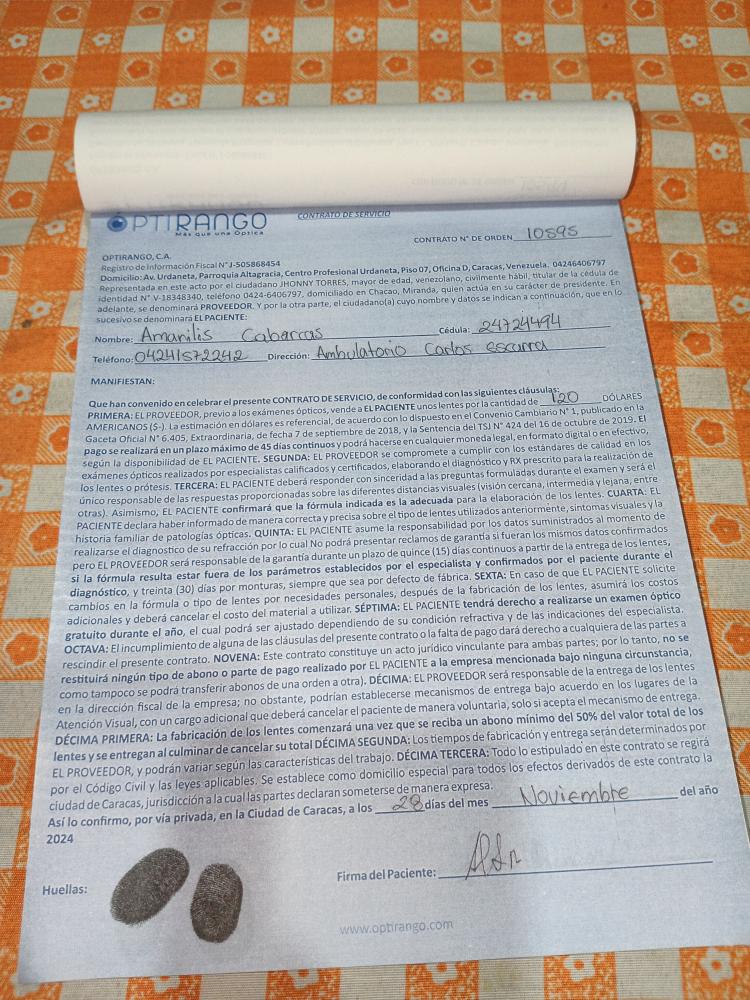 OPTIRANGO
Más que una Óptica
CONTRATO DE SERVICIO
CONTRATO N° DE ORDEN 10595
OPTIRANGO, C.A.
Registro de Información Fiscal N° J-505868454
Domicilio: Av. Urdaneta, Parroquia Altagracia, Centro Profesional Urdaneta, Piso 07, Oficina D, Caracas, Venezuela. 04246406797
Representada en este acto por el ciudadano JHONNY TORRES, mayor de edad, venezolano, civilmente hábil, titular de la cédula de
identidad N° V-18348340, teléfono 0424-6406797, domiciliado en Chacao, Miranda, quien actúa en su carácter de presidente. En
adelante, se denominará PROVEEDOR. Y por la otra parte, el ciudadano(a) cuyo nombre y datos se indican a continuación, que en lo
sucesivo se denominará EL PACIENTE:
Nombre: Amarilis Cabarcas Cédula: 24724494
Teléfono: 04241572242 Dirección: Ambulatorio Carlos escarra
MANIFIESTAN:
Que han convenido en celebrar el presente CONTRATO DE SERVICIO, de conformidad con las siguientes cláusulas:
PRIMERA: EL PROVEEDOR, previo a los exámenes ópticos, vende a EL PACIENTE unos lentes por la cantidad de 120 DÓLARES
AMERICANOS ($-). La estimación en dólares es referencial, de acuerdo con lo dispuesto en el Convenio Cambiario N° 1, publicado en la
Gaceta Oficial N° 6.405, Extraordinaria, de fecha 7 de septiembre de 2018, y la Sentencia del TSJ N° 424 del 16 de octubre de 2019. El
pago se realizará en un plazo máximo de 45 días continuos y podrá hacerse en cualquier moneda legal, en formato digital o en efectivo,
según la disponibilidad de EL PACIENTE. SEGUNDA: EL PROVEEDOR se compromete a cumplir con los estándares de calidad en los
exámenes ópticos realizados por especialistas calificados y certificados, elaborando el diagnóstico y RX prescrito para la realización de
los lentes o prótesis. TERCERA: EL PACIENTE deberá responder con sinceridad a las preguntas formuladas durante el examen y será el
único responsable de las respuestas proporcionadas sobre las diferentes distancias visuales (visión cercana, intermedia y lejana, entre
otras). Asimismo, EL PACIENTE confirmará que la fórmula indicada es la adecuada para la elaboración de los lentes. CUARTA: EL
PACIENTE declara haber informado de manera correcta y precisa sobre el tipo de lentes utilizados anteriormente, síntomas visuales y la
historia familiar de patologías ópticas. QUINTA: EL PACIENTE asume la responsabilidad por los datos suministrados al momento de
realizarse el diagnostico de su refracción por lo cual No podrá presentar reclamos de garantía si fueran los mismos datos confirmados
pero EL PROVEEDOR será responsable de la garantía durante un plazo de quince (15) días continuos a partir de la entrega de los lentes,
si la fórmula resulta estar fuera de los parámetros establecidos por el especialista y confirmados por el paciente durante el
diagnóstico, y treinta (30) días por monturas, siempre que sea por defecto de fábrica. SEXTA: En caso de que EL PACIENTE solicite
cambios en la fórmula o tipo de lentes por necesidades personales, después de la fabricación de los lentes, asumirá los costos
adicionales y deberá cancelar el costo del material a utilizar. SÉPTIMA: EL PACIENTE tendrá derecho a realizarse un examen óptico
gratuito durante el año, el cual podrá ser ajustado dependiendo de su condición refractiva y de las indicaciones del especialista.
OCTAVA: El incumplimiento de alguna de las cláusulas del presente contrato o la falta de pago dará derecho a cualquiera de las partes a
rescindir el presente contrato. NOVENA: Este contrato constituye un acto jurídico vinculante para ambas partes; por lo tanto, no se
restituirá ningún tipo de abono o parte de pago realizado por EL PACIENTE a la empresa mencionada bajo ninguna circunstancia,
como tampoco se podrá transferir abonos de una orden a otra). DÉCIMA: EL PROVEEDOR será responsable de la entrega de los lentes
en la dirección fiscal de la empresa; no obstante, podrían establecerse mecanismos de entrega bajo acuerdo en los lugares de la
Atención Visual, con un cargo adicional que deberá cancelar el paciente de manera voluntaria, solo si acepta el mecanismo de entrega.
DÉCIMA PRIMERA: La fabricación de los lentes comenzará una vez que se reciba un abono mínimo del 50% del valor total de los
lentes y se entregan al culminar de cancelar su total DÉCIMA SEGUNDA: Los tiempos de fabricación y entrega serán determinados por
EL PROVEEDOR, y podrán variar según las características del trabajo. DÉCIMA TERCERA: Todo lo estipulado en este contrato se regirá
por el Código Civil y las leyes aplicables. Se establece como domicilio especial para todos los efectos derivados de este contrato la
ciudad de Caracas, jurisdicción a la cual las partes declaran someterse de manera expresa.
Así lo confirmo, por vía privada, en la Ciudad de Caracas, a los 28 días del mes Noviembre del año
2024
Huellas:
Firma del Paciente:
www.optirango.com